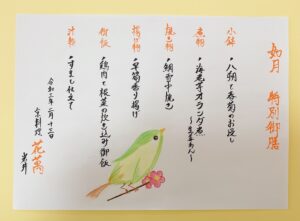 如月 特別御膳
小鉢
・八朔と春菊のお浸し
煮物
・海老芋オランダ煮
〜生姜あん〜
焼き物
・鯛雲丹焼き
揚げ物
・早筍香り揚げ
御飯
・鶏肉と根菜の炊き込み御飯
汁物
・すまし仕立て
令和三年二月十三日
京料理 花萬